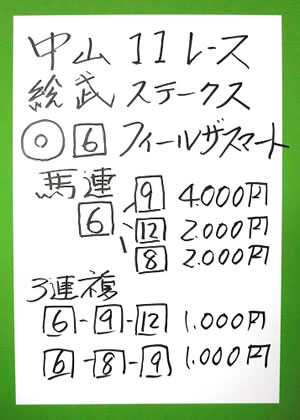 中山 11 レース
総武 ステークス
◎ 6 フィールザスマート
馬連
6 9 4.000円
12 2.000円
8 2.000円
3連複
6-9-12 1.000円
6-8-9 1.000円